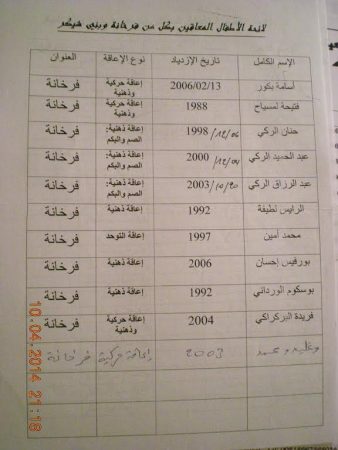 لائحة الأطفال المعاقين بكل من فرخانة وبني شيكر
الإسم الكامل تاريخ الإزدياد نوع الإعاقة العنوان
أسامة بكور 2006/02/13 إعاقة حركية وذهنية فرخانة
فتيحة لمسياح 1988 إعاقة حركية وذهنية فرخانة
حنان الركي 1998/12/06 إعاقة ذهنية: الصم والبكم فرخانة
عبد الحميد الركي 2000/12/04 إعاقة ذهنية: الصم والبكم فرخانة
عبد الرزاق الركي 2003/10/20 إعاقة ذهنية: الصم والبكم فرخانة
الرايس لطيفة 1992 إعاقة ذهنية فرخانة
محمد أمين 1997 إعاقة التوحد فرخانة
بورفيس إحسان 2006 إعاقة ذهنية فرخانة
بوسكوم الورداني 1992 إعاقة ذهنية فرخانة
فريدة البركراكي 2004 إعاقة حركية وذهنية فرخانة
محمد 2003 إعاقة حركية فرخانة
10.04.2014 21:18